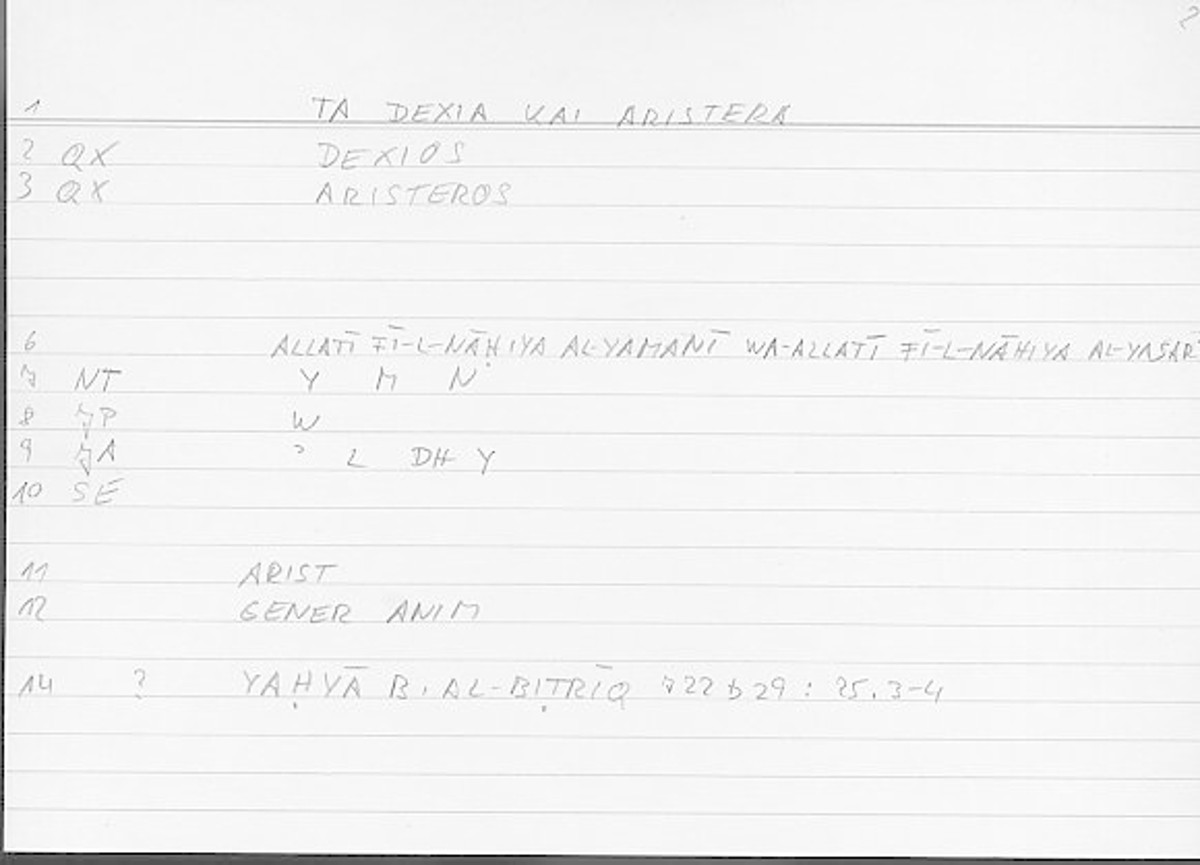 2
1 TA DEXIA KAI ARISTERA
2 QX DEXIOS
3 QX ARISTEROS
6 ALLATĪ FĪ-L-NĀḤIYA AL-YAMANĪ WA-ALLATĪ FĪ-L-NĀHIYA AL-YASAR
7 NT Y M N
8 JP W
9 JA ʾ L DH Y
10 SE
11 ARIST
12 GENER ANIM
14 ? YAḤYĀ B. AL-BIṬRĪQ 722 b 29 : 25.3-4